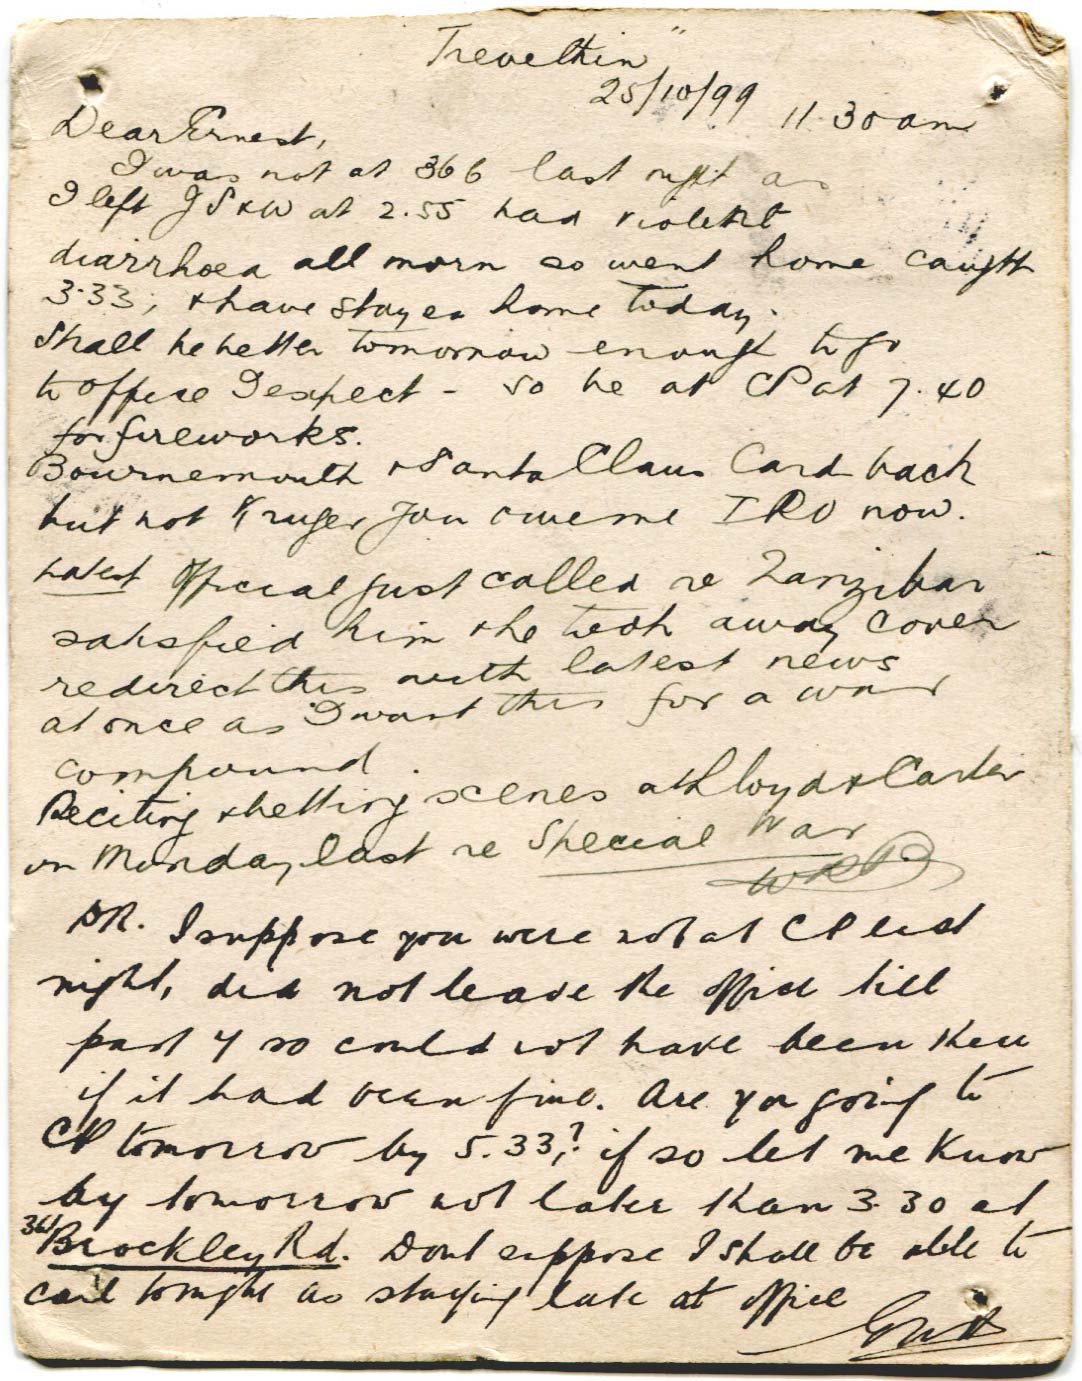 "Trevethin"
25/10/99 11.30 am
Dear Ernest,
I was not at 366 last night as
I left J S & W at 2.55 had violent
diarrhoea all morn so went home caught
3.33, & have stayed home today.
Shall be better tomorrow enough to go
to office I expect - so be at CP at 7.40
for fireworks.
Bournemouth & Santa Claus Card back
but not Kruger you owe me now.
Latest Official just called re Zanzibar
satisfied him & he took away cover
redirect this with latest news
at once as I want this for a war
compound.
Reciting & betting scenes at Lloyd & Carter
on Monday last re Special War
WRB
DR. I suppose you were not at CP last
night, did not leave the office till
past 4 so could not have been there
if it had been fine. Are you going to
CP tomorrow by 5.33,? if so let me know
by tomorrow not later than 3.30 at
Brockley Rd. Dont suppose I shall be able to
call tonight as staying late at office